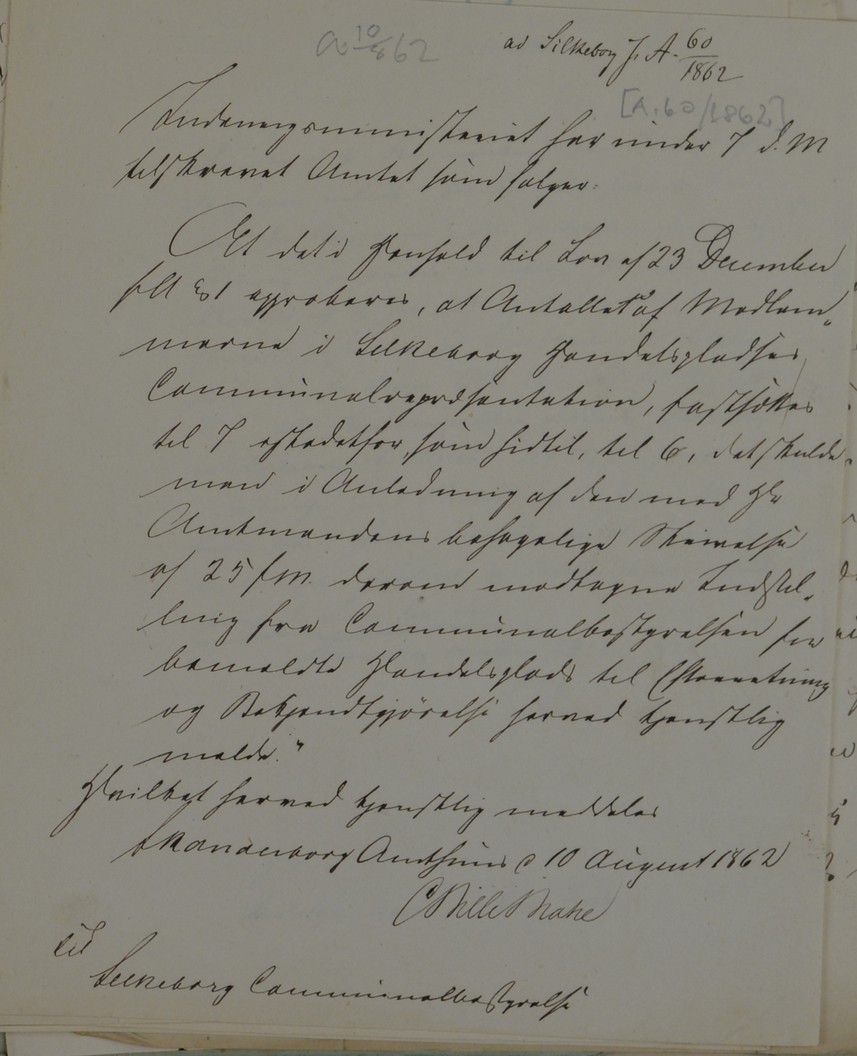 10/8 862
ad Silkeborg J. A. 60/1862
[A. 60/1862]
Indenrigsministeriet har under 7 d. M
tilskrevet Amtet som følger:
At det i Henhold til Lov af 23 December
f. A. § 1 approberes, at Antallet af Medlem„
merne i Silkeborg Handelsplads's
Communalrepræsentation, fastsættes
til 7 istedetfor som hidtil, til 6, det skulde
man i Anledning af den med Hr
Amtmandens behagelige Skrivelse
af 25 f. m. derom modtagne Indstil„
ling fra Communalbestyrelsen for
bemeldte Handelsplads til Efterretning
og Bekjendtgjørelse herved tjenstlig
melde."
Hvilket herved tjenstlig meddeles
Skanderborg Amthuus d 10 August 1862
C Bille Brahe
Til
Silkeborg Communalbestyrelse